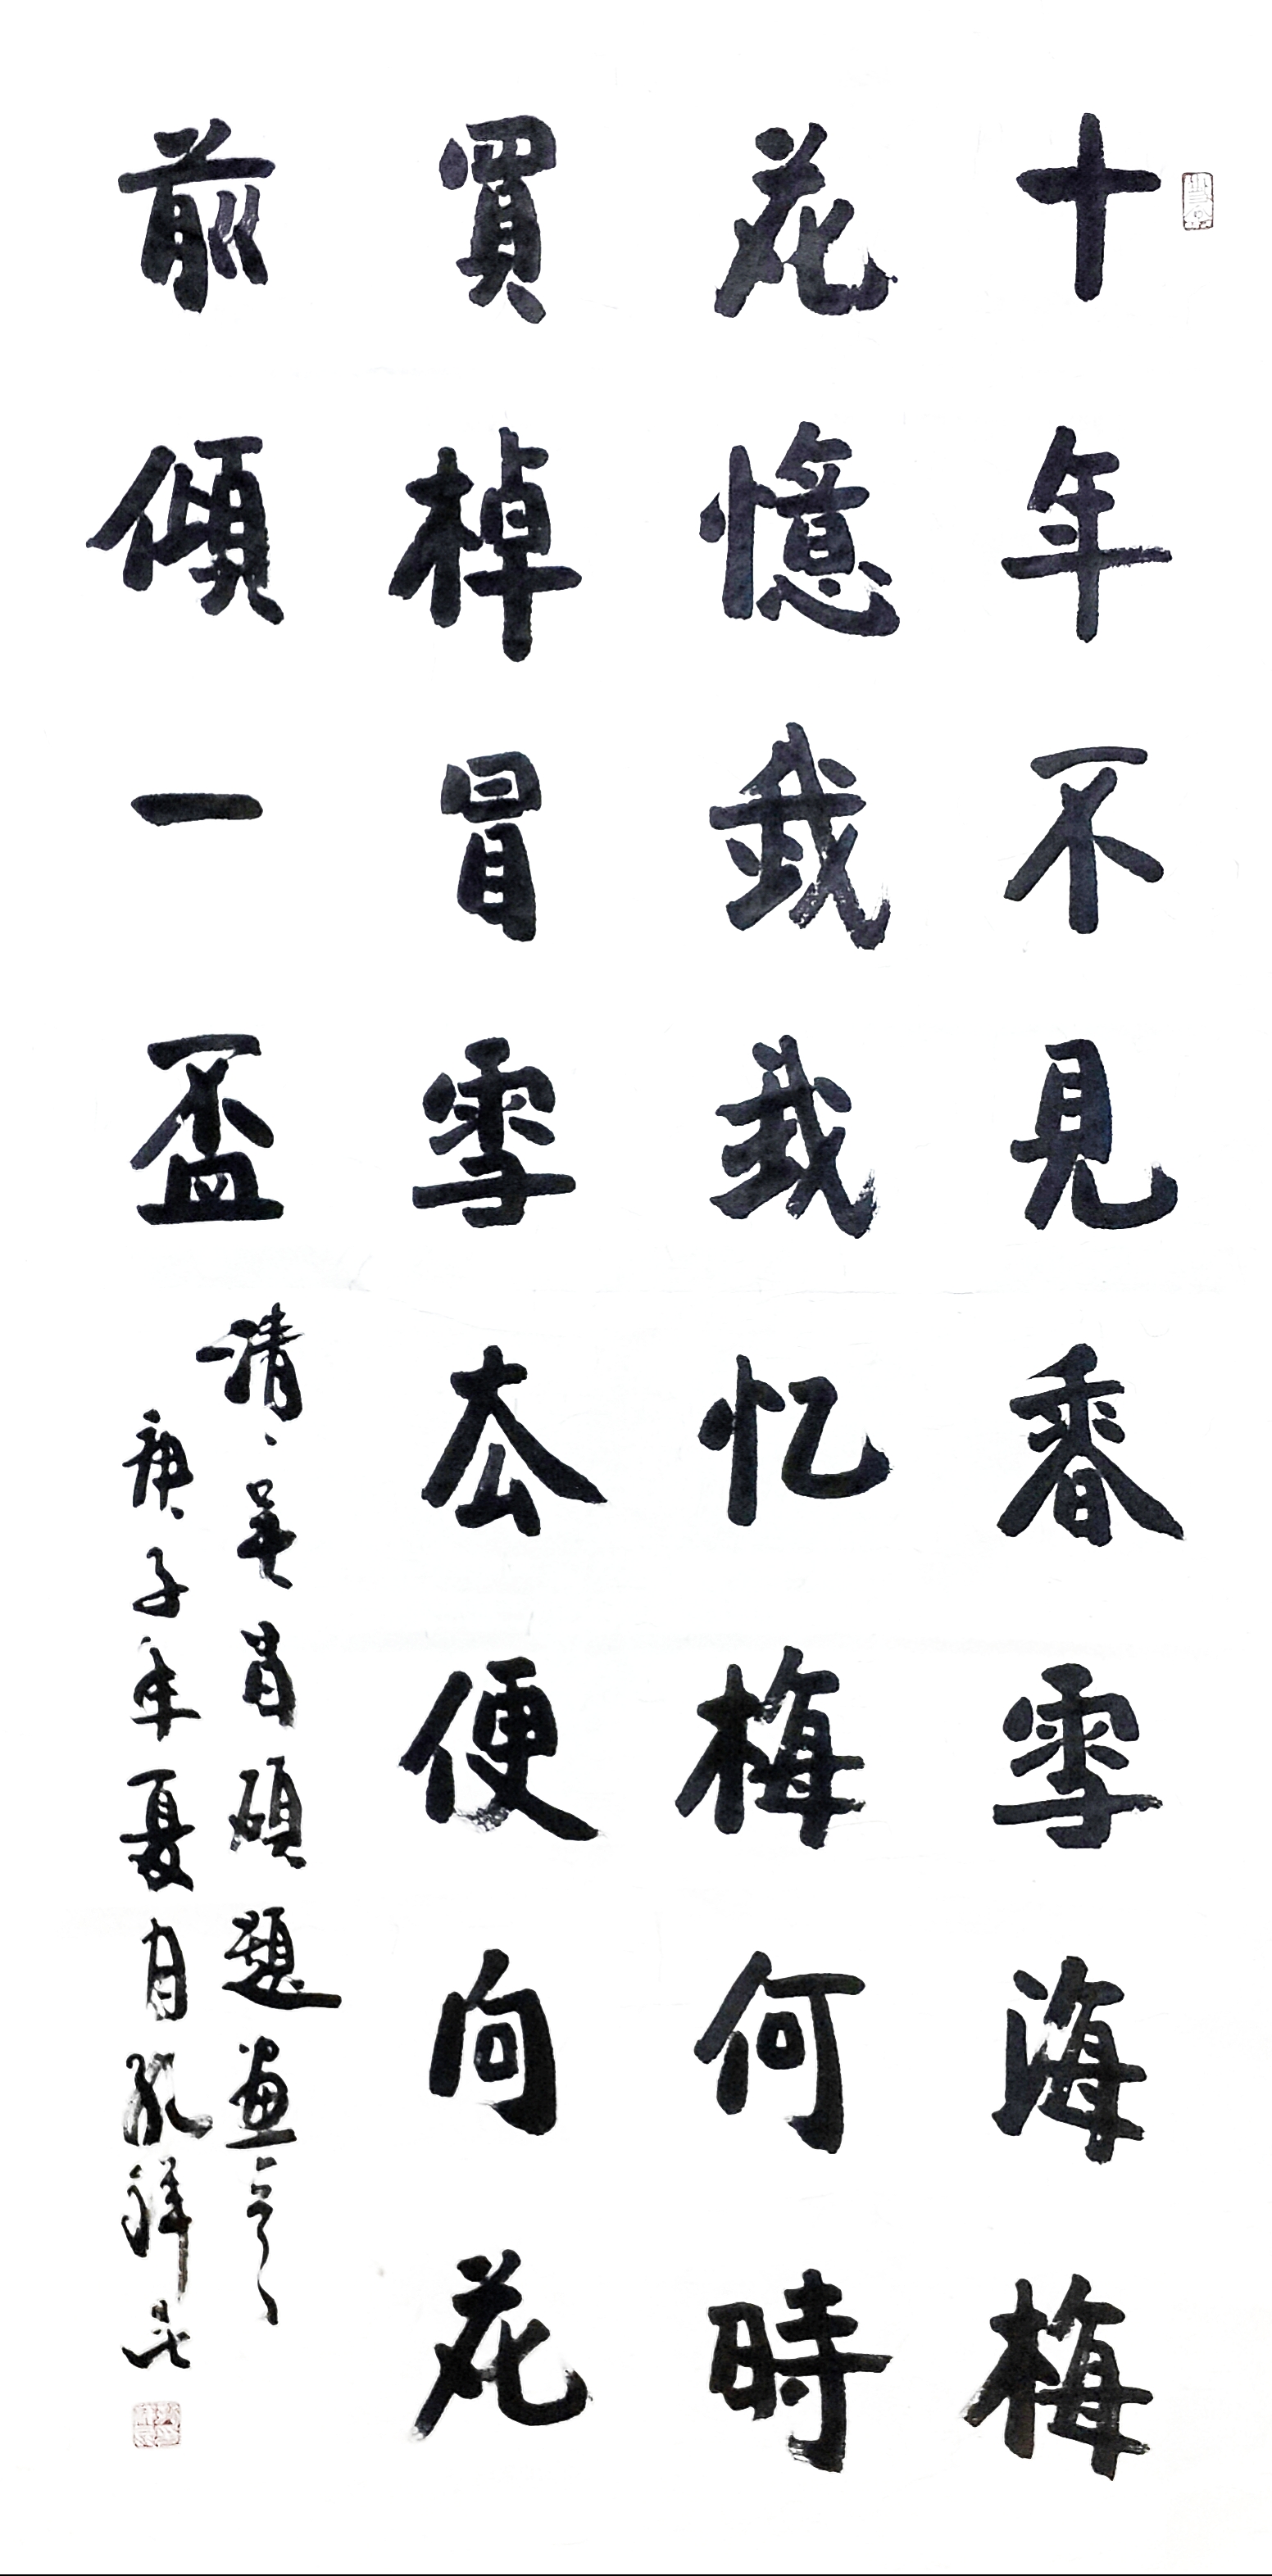 十年不見香雪海梅
花憶我我忆梅何時
買棹冒雪去便向花
前傾一盃
清吴昌碩題畫詩
庚子年夏月孔祥